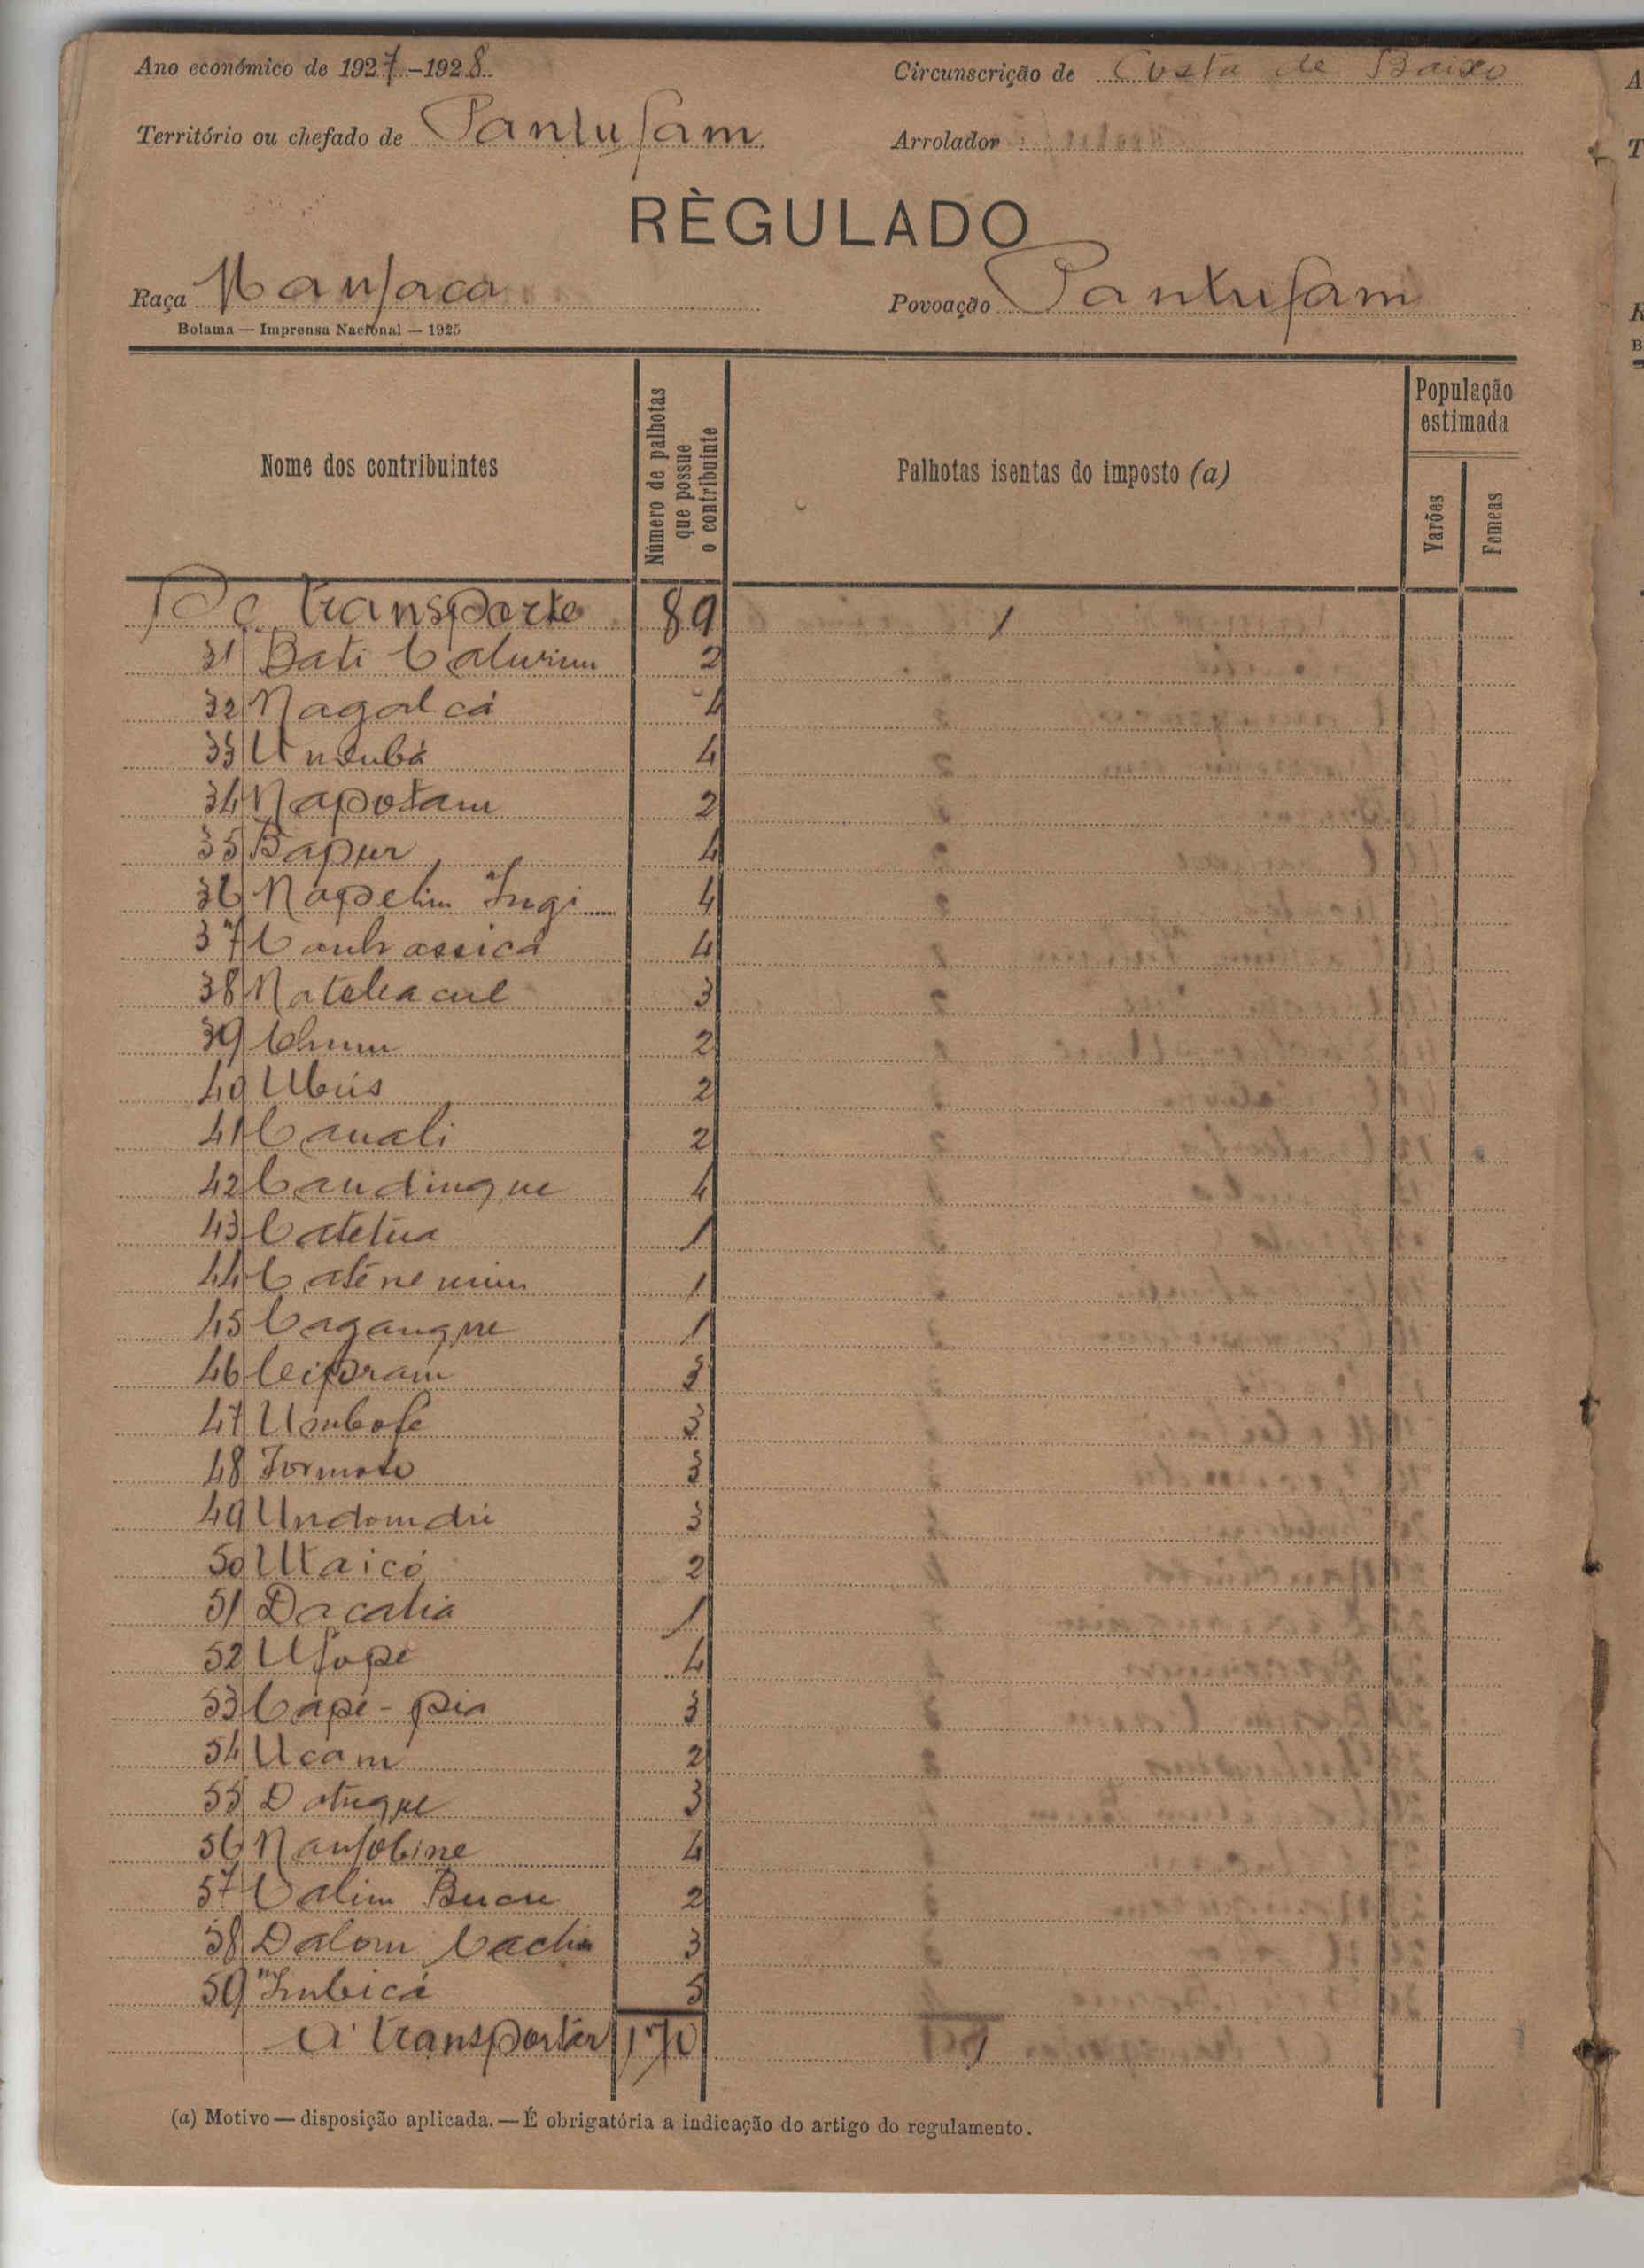 Ano económico de 1927-1928
Circunscrição de Costa de Baixo
Território ou chefado de Pantufam
Arrolador
RÈGULADO
Raça Manjaca
Povoação Pantufam
Bolama — Imprensa Nacional — 1925
Nome dos contribuintes
Número de palhotas que possue o contribuinte
Palhotas isentas do imposto (a)
População estimada
Varões
Femeas
De transporte 89 1
31 Bati Caturim 2
32 Nagalcá 4
33 Unsubá 4
34 Napotam 2
35 Bapur 4
36 Napelim Ingi 4
37 Canhassicá 4
38 Natebacul 3
39 Chum 2
40 Ubús 2
41 Canali 2
42 Candingue 4
43 Catetua 1
44 Caténemim 1
45 Cagangue 1
46 Ceiporam 3
47 Umbofe 3
48 Formoto 3
49 Undomdú 3
50 Utaicó 2
51 Dacatia 1
52 Ufope 4
53 Cápe-pia 3
54 Ucam 2
55 Datugue 3
56 Nanjobine 4
57 Valim Bucu 2
58 Dalom Cachu 3
59 Imbicá 5
A transportar 170 1
(a) Motivo — disposição aplicada. — É obrigatória a indicação do artigo do regulamento.